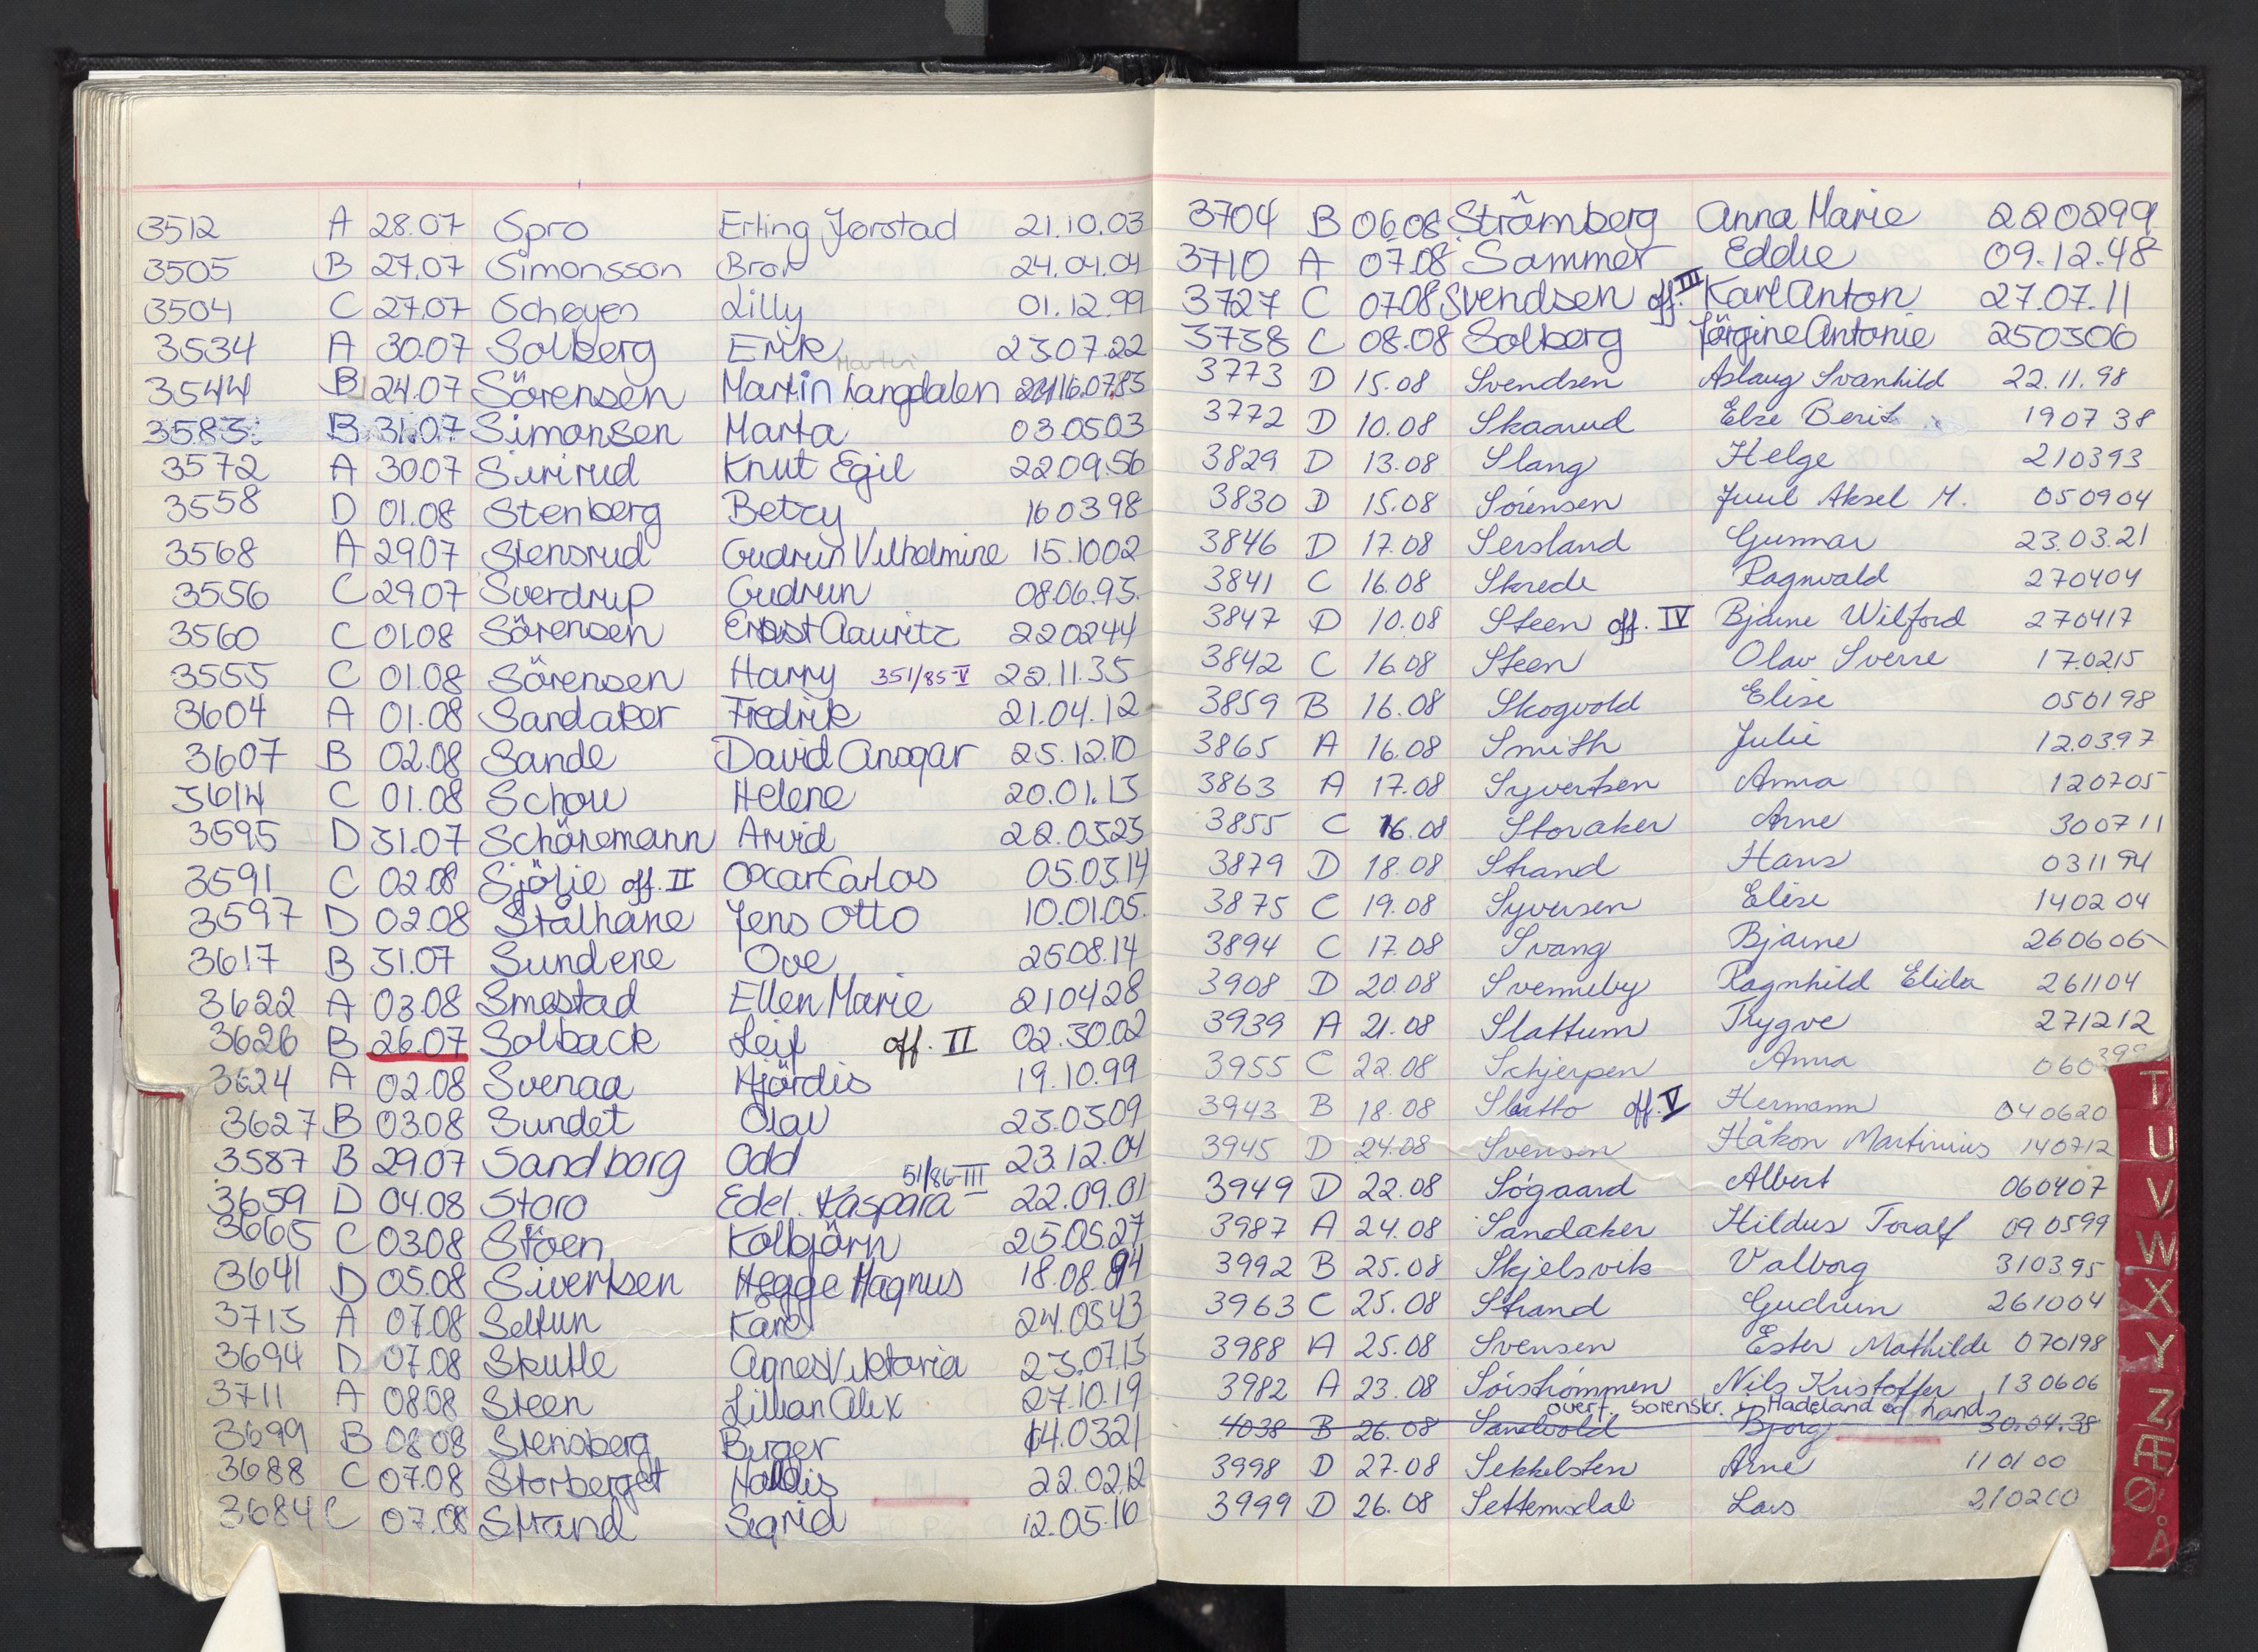 3512 A 28.07 Spro Erling Jorstad 21.10.03
3505 B 27.07 Simonsson Bror 24.04.04
3504 C 27.07 Schøyen Lilly 01.12.99
3534 A 30.07 Solberg Erik 23.07.22
Martin
3544 B 24.07 Sörensen Martin Langdalen 16.07.83
3583 B 31.07 Simonsen Marta 03.05.03
3572 A 30.07 Sirirud Knut Egil 22.09.56
3558 D 01.08 Stenberg Betzy 160398
3568 A 29.07 Stensrud Gudrun Vilhelmine 15.1002
3556 C 29.07 Sverdrup Gudrun 08.06.95.
3560 C 01.08 Sörensen Ernst Mauritz 220244
3555 C 01.08 Sörensen Harry 351/85-V 22.11.35
3604 A 01.08 Sandaker Fredrik 21.04.12
3607 B 02.08 Sande David Ansgar 25.12.10
3614 C 01.08 Schou Helene 20.01.13
3595 D 31.07 Schönemann Arvid 22.0323
3591 C 02.08 Sjölie off. II Oscar Carlos 05.03.14
3597 D 02.08 Stålhane Jens Otto 10.01.05.
3617 B 31.07 Sundene Ove 25.08.14
3622 A 03.08 Smestad Ellen Marie 210428
3626 B 26.07 Solback Leif off. II 02.30.02
3624 A 02.08 Svenaa Hjördis 19.10.99
3627 B 03.08 Sundet Olav 23.03.09
3587 B 29.07 Sandborg Odd 23.12.04
51/86-III
3659 D 04.08 Storo Edel. Kaspara 22.09.01
3665 C 03.08 Stöen Kolbjörn 25.05.27
3641 D 05.08 Sivertsen Hegge Magnus 18.08.94
3713 A 07.08 Seltun Kåre 24.05.43
3694 D 07.08 Skutle Agnes Viktoria 23.07.13
3711 A 08.08 Steen Lillian Alix 27.10.19
3699 B 08.08 Stensberg Birger 14.0321
3688 C 07.08 Storberget Halldis 22.02.12
3684 C 07.08 Strand Sigrid 12.05.10
3704 B 06.08 Strömberg Anna Marie 220299
3710 A 07.08 Sammer Eddie 09.12.48
3727 C 07.08 Svendsen off. III Karl Anton 27.07.11
3738 C 08.08 Solberg Jörgine Antonie 250306
3773 D 15.08 Svendsen Aslaug Svanhild 22.11.98
3772 D 10.08 Skaarud Else Berit 190738
3829 D 13.08 Slang Helge 210393
3830 D 15.08 Sörensen Juul Aksel M. 050904
3846 D 17.08 Sersland Gunnar 23.03.21
3841 C 16.08 Skrede Ragnvald 270404
3847 D 10.08 Steen off. IV Bjarne Wilford 270417
3842 C 16.08 Steen Olav Sverre 17.0215
3859 B 16.08 Skogvold Elise 050198
3865 A 16.08 Smith Julie 12.0397
3863 A 17.08 Syvertsen Anna 120705
3855 C 16.08 Storaker Arne 300711
3879 D 18.08 Strand Hans 031194
3875 C 19.08 Syversen Elise 140204
3894 C 17.08 Svang Bjarne 260606
3908 D 20.08 Svenneby Ragnhild Elida 261104
3939 A 21.08 Slattum Trygve 271212
3955 C 22.08 Schjerpen Anna 060399
3943 B 18.08 Slatto off. V Hermann 040620
3945 D 24.08 Svensen Håkon Martinius 140712
3949 D 22.08 Søgaard Albert 060407
3987 A 24.08 Sandaker Hildus Toralf 09.0599
3992 B 25.08 Skjelsvik Valborg 310395
3963 C 25.08 Strand Gudrun 261004
3988 A 25.08 Svensen Ester Mathilde 070198
3982 A 23.08 Sörströmmen Nils Kristoffer 130606
overf. sorenskr. i Hadeland og Land
4038 B 26.08 Sandvold Bjorg 30.04.38
3998 D 27.08 Sekkelsten Arne 110100
3999 D 26.08 Settemsdal Lars 210200
T
U
V
W
X
Y
Z
Æ
Ø
Å